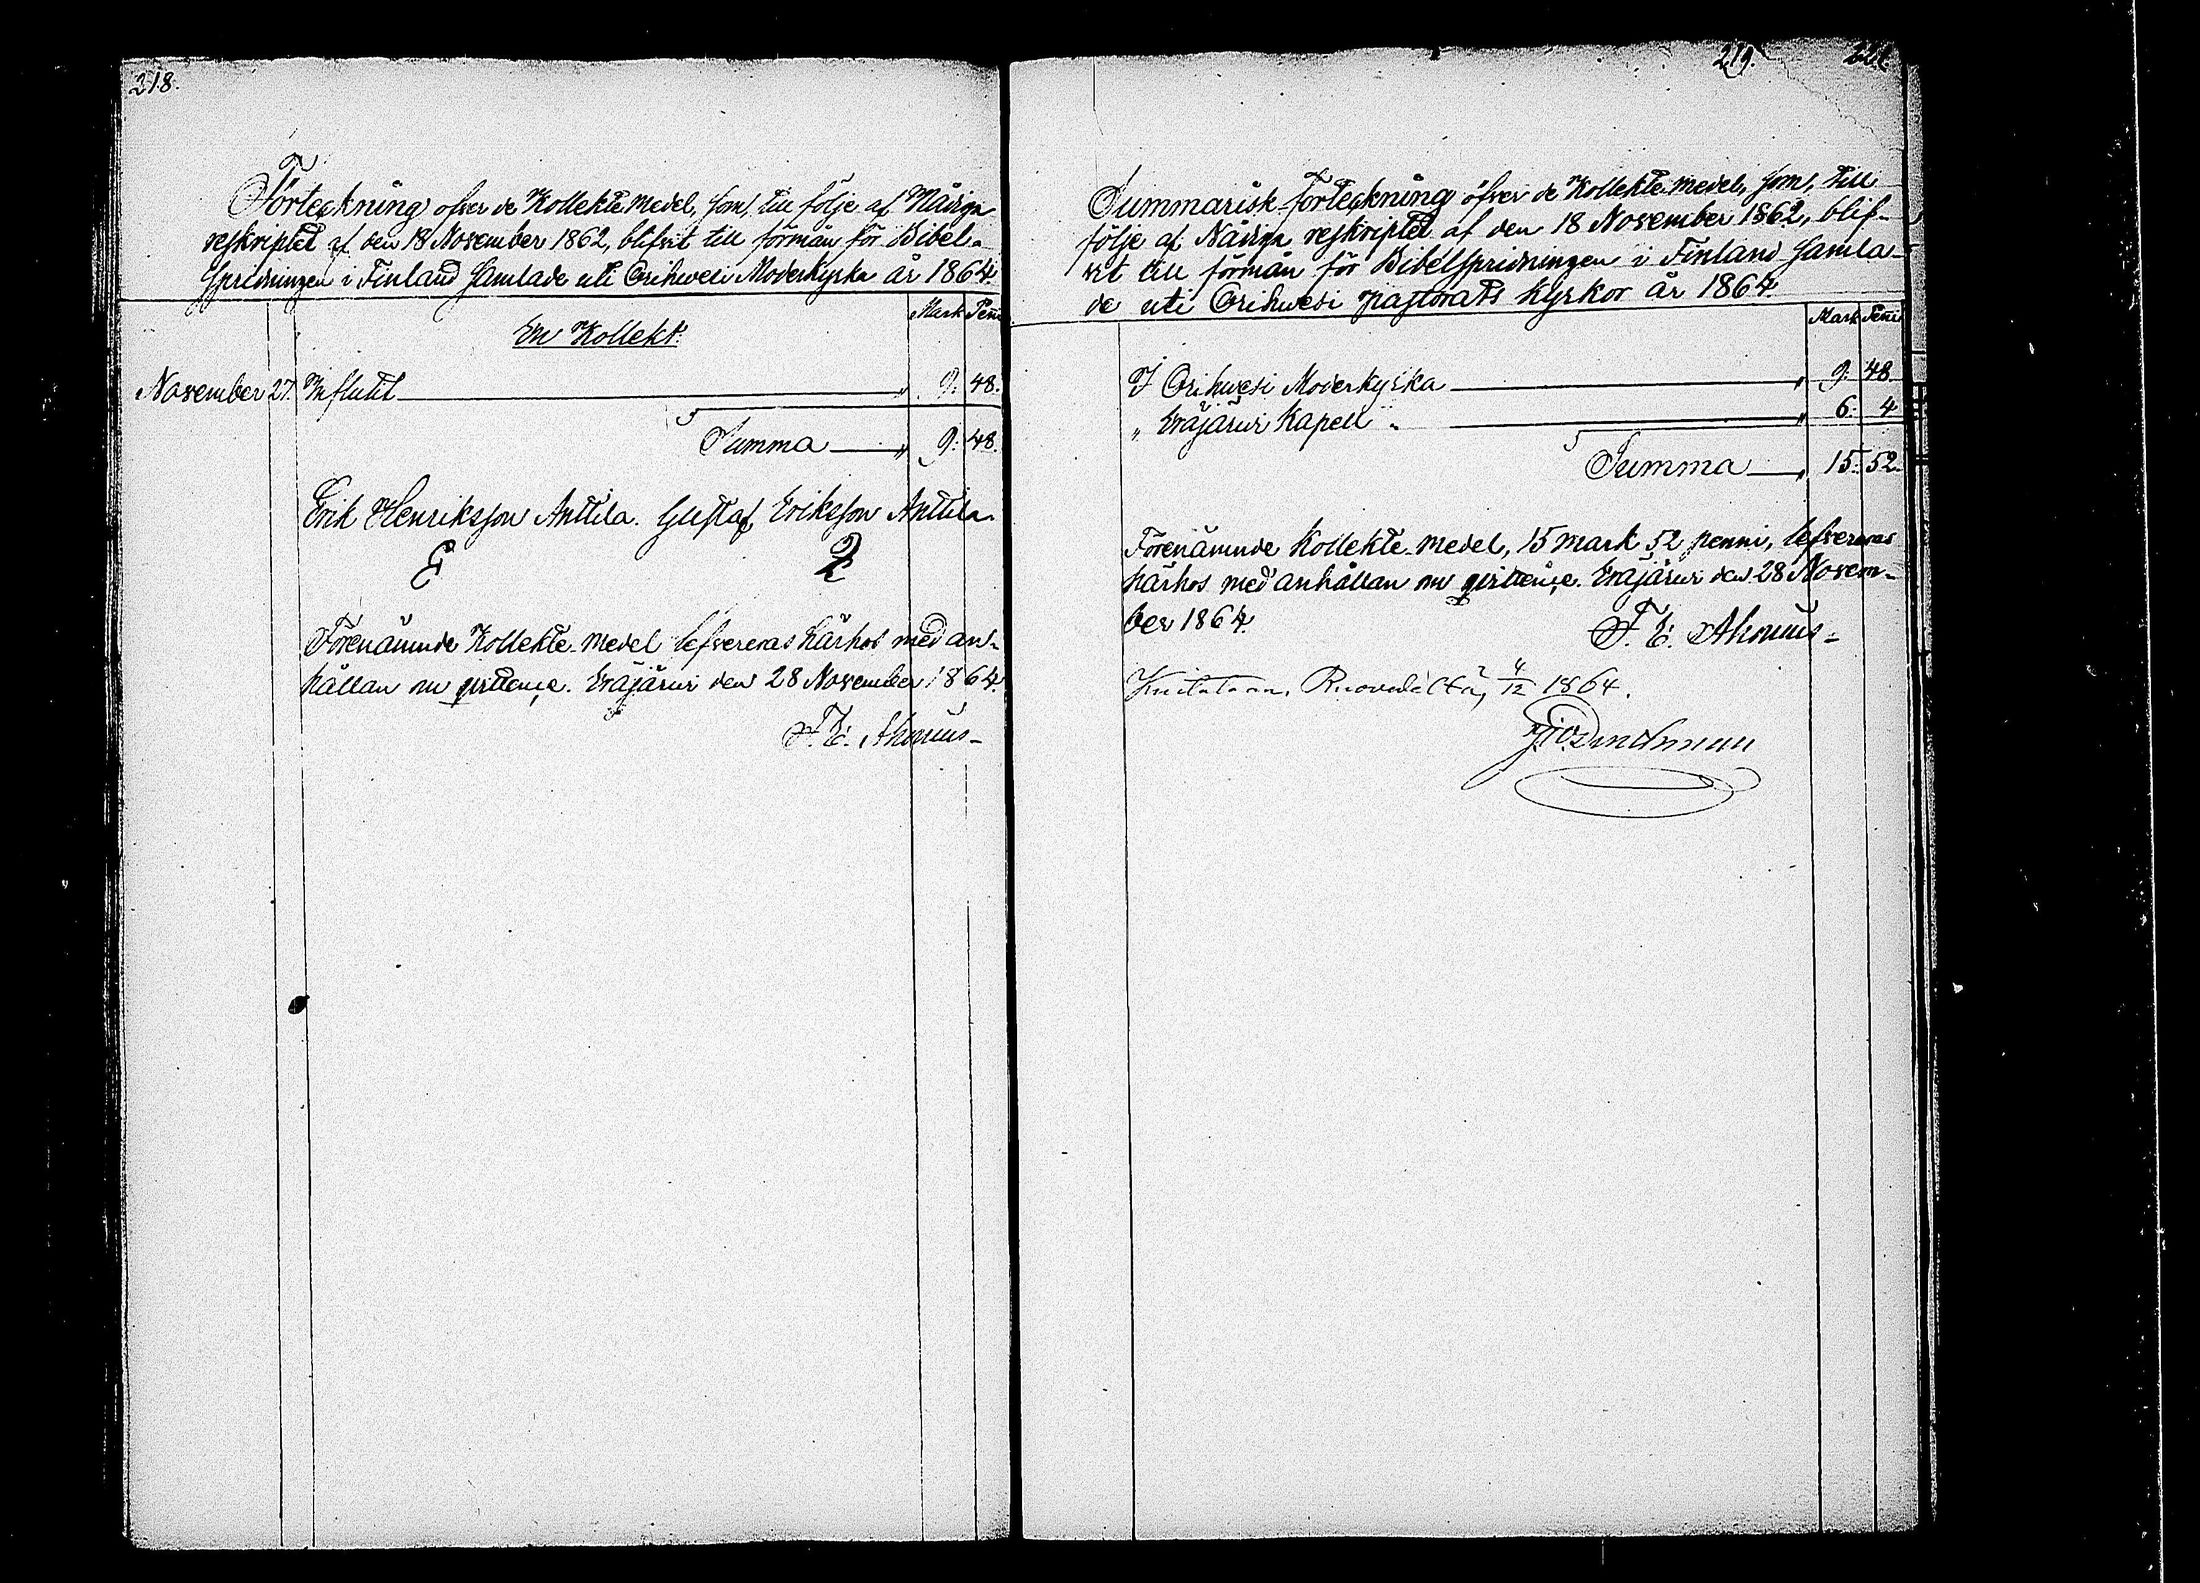 218.
Förteckning öfver de Kollekte medel, som, till följe af Nådiga
reskriptet af den 18 November 1862, blifvit till förmån för Bibel-
spridningen i Finland samlade uti Orihwesi Moderkyrka år 1864.
Mark Penni
En Kollekt.
November 27. Influtit " 9. 48.
Summa " 9. 48.
Erik Henriksson Anttila. Gustaf Eriksson Anttila.
Förenämnde Kollekte-medel lefvereras härhos med an-
hållan om qvittence. Eräjärvi den 28 November 1864.
F. E. Ahonius
219.
Summarisk Förteckning öfver de Kollekte-medel, som, till
följe af Nådiga reskriptet af den 18 November 1862, blif-
vit till förmån för Bibelspridningen i Finland samla-
de uti Orihwesi pastorats kyrkor år 1864.
Mark Penni
I Orihwesi Moderkyrka " 9. 48
" Eräjärvi Kapell " 6. 4
Summa " 15. 52.
Förenämnde Kollekte-medel, 15 mark 52 penni, lefvereras
härhos med anhållan om qvittence. Eräjärvi den 28 Novem-
ber 1864.
F. E. Ahonius
Kuitataan, Ruovedeltä, 4/12 1864.